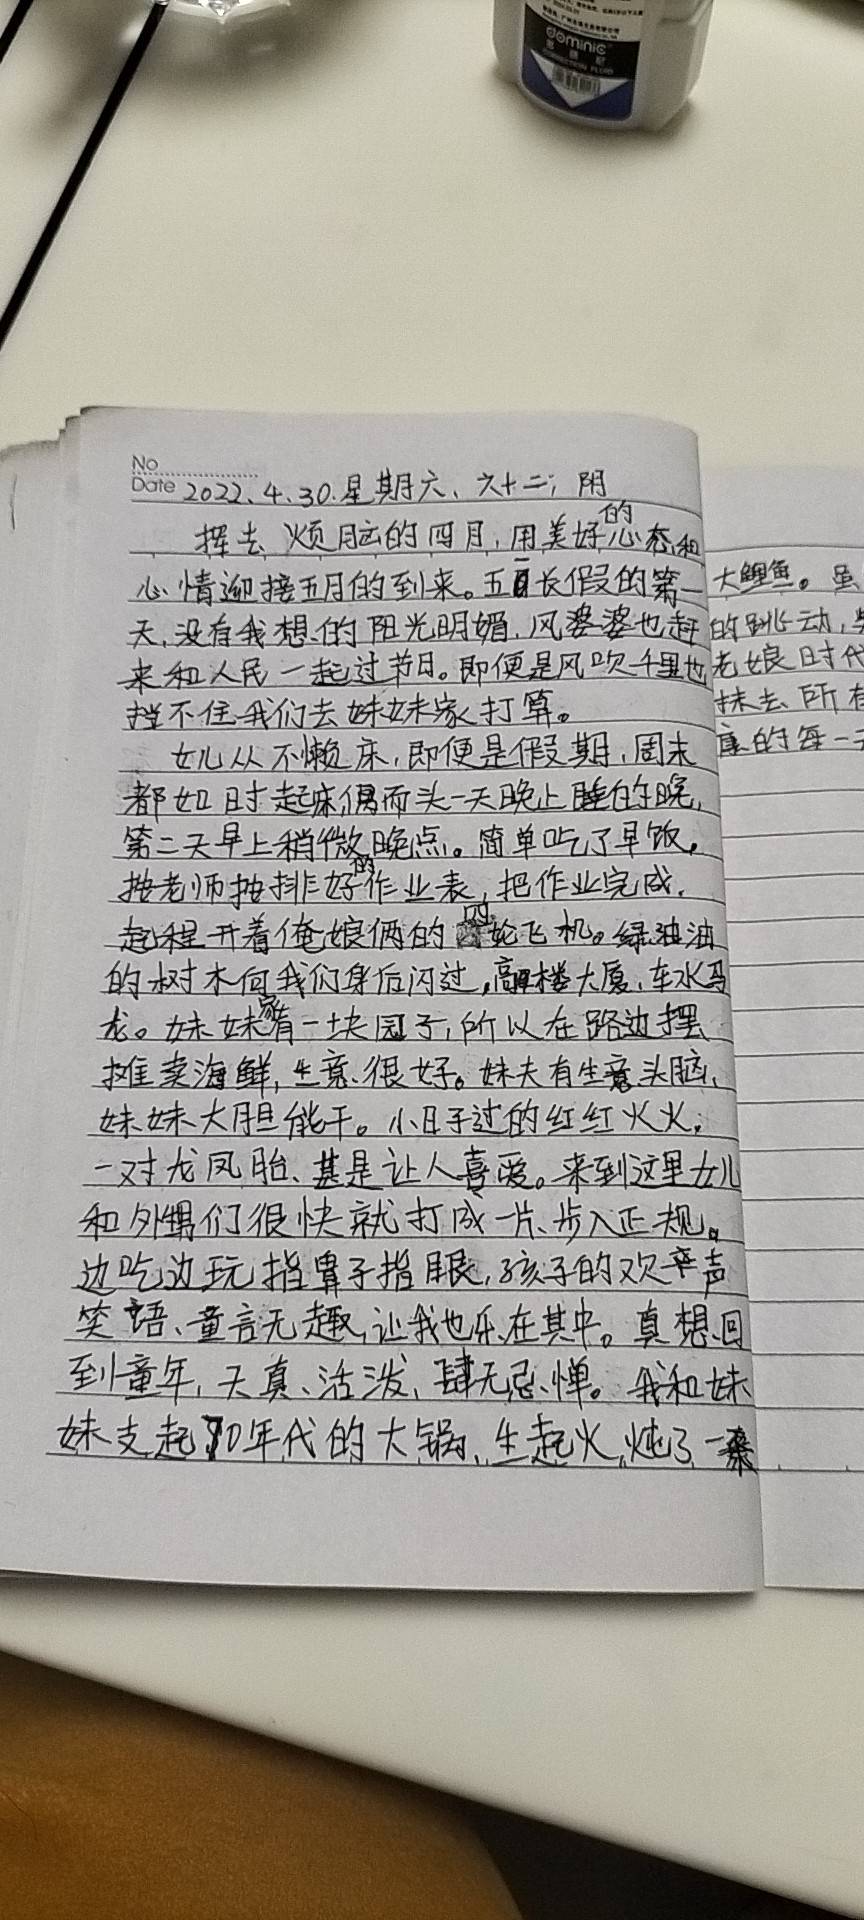 dominic
CORRECTION FLUID
No
Date 2022.4.30.星期六、六十二;阴
挥去烦脑的四月,用美好的心态和
心情迎接五月的到来。五一长假的第一
天,没有我想的阳光明媚,风婆婆也赶
来和人民一起过节日。即便是风吹千里也
挡不住我们去妹妹家打算。
女儿从不懒床,即便是假期,周末
都如时起床,偶而头一天晚上睡的晚,
第二天早上稍微晚点。简单吃了早饭,
按老师按排好的作业表,把作业完成,
起程开着俺娘俩的四轮飞机。绿油油
的树木向我们身后闪过,高楼大厦、车水马
龙。妹妹家有一块园子,所以在路边摆
摊卖海鲜,生意很好。妹夫有生意头脑,
妹妹大胆能干。小日子过的红红火火,
一对龙凤胎、甚是让人喜爱。来到这里女儿
和外甥们很快就打成一片、步入正规。
边吃边玩指鼻子指眼,孩子的欢声
笑语、童言无趣,让我也乐在其中。真想回
到童年,天真、活泼、肆无忌惮。我和妹
妹支起70年代的大锅、生起火,炖了一条
大鲤鱼。虽
的跳动,
老娘日时代
抹去所有
康的每一天